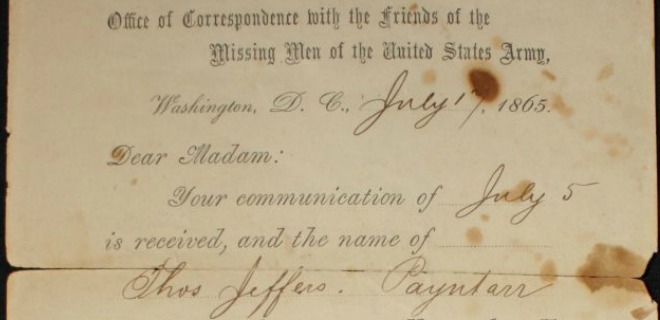 Office of Correspondence with the Friends of the
Missing Men of the United States Army,
Washington, D. C., July 17, 1865.
Dear Madam:
Your communication of July 5
is received, and the name of
Thos Jeffers. Payntarr